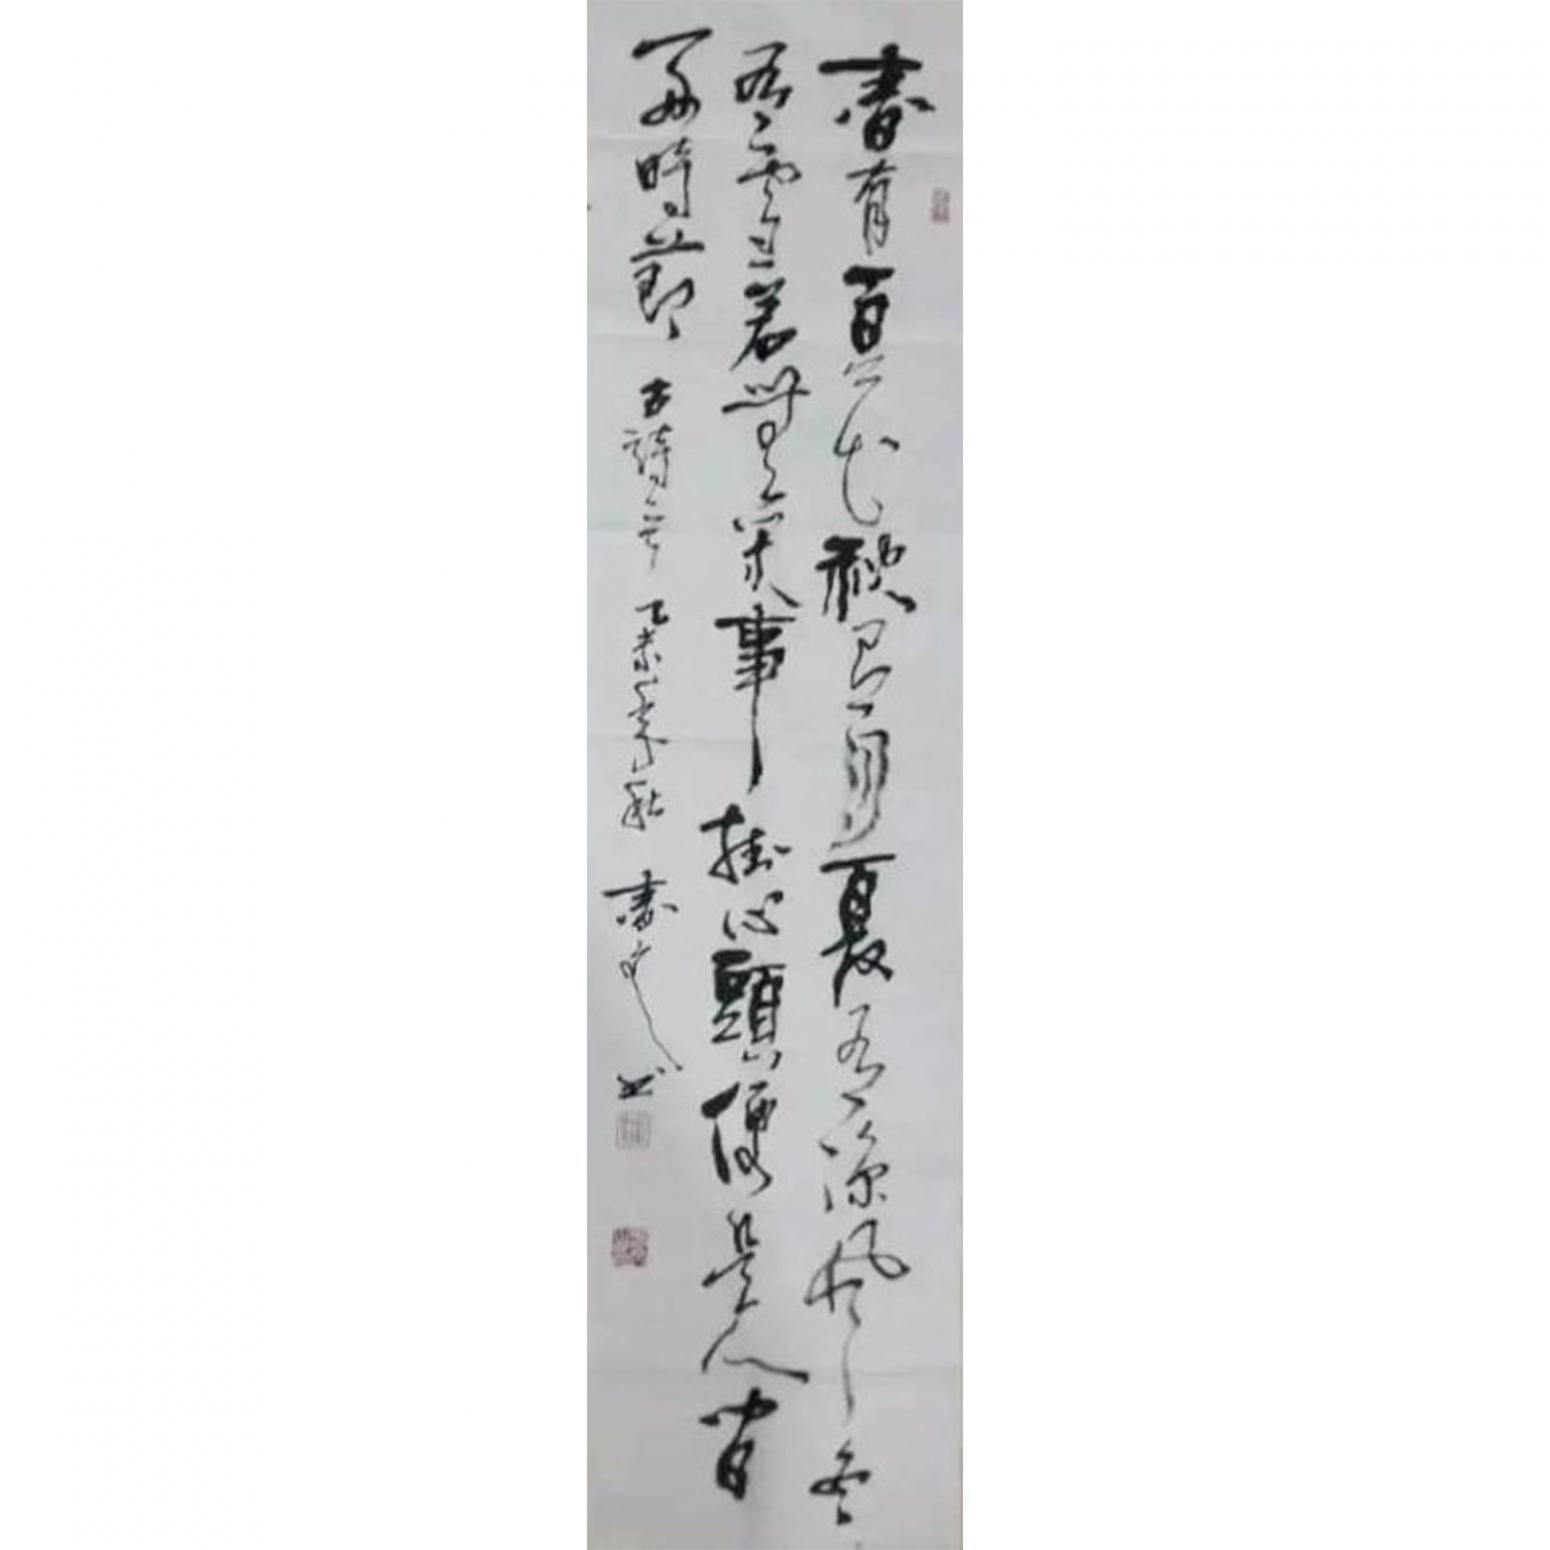 春有百花秋有月夏有涼風冬
有雪若無閑事掛心頭便是人間
好時節 古詩一首 乙未 秋 春 书